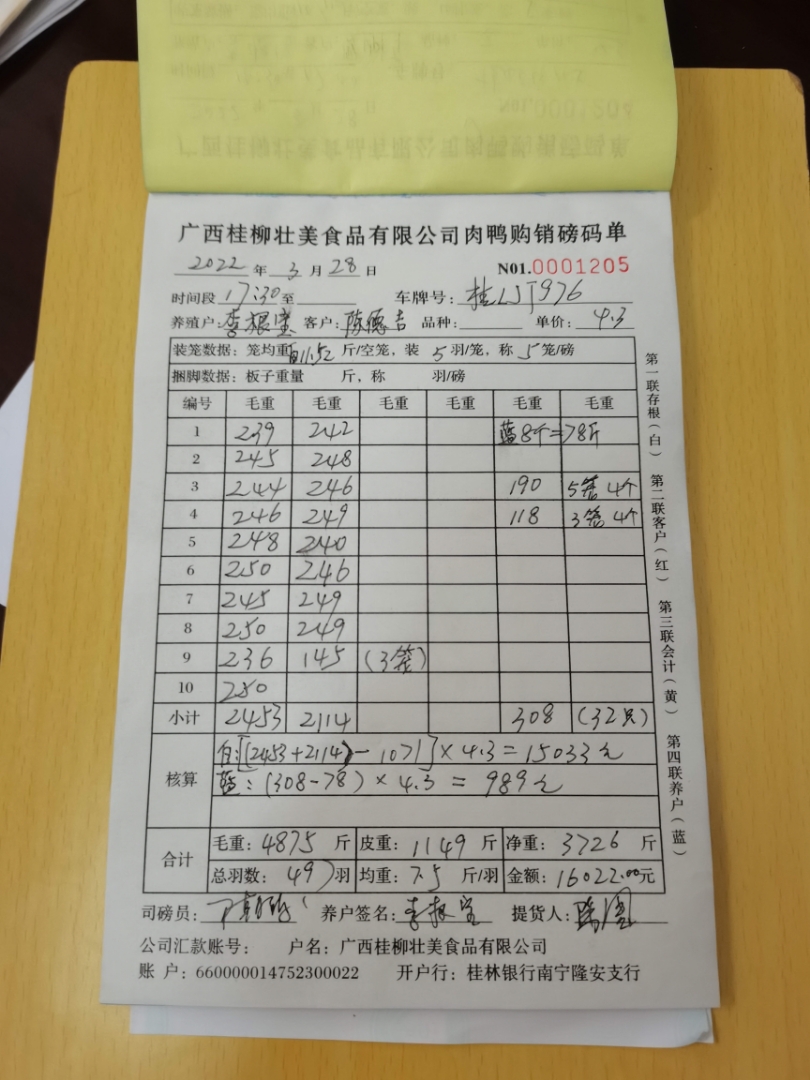 广西桂柳壮美食品有限公司肉鸭购销磅码单
2022 年 3 月 28 日 N01.0001205
时间段 17:30 至 车牌号: 桂LJT976
养殖户: 李根宝 客户: 陈德吉 品种: 单价: 4.3
装笼数据: 笼均重 白11.52 斤/空笼, 装 5 羽/笼, 称 5 笼/磅
捆脚数据: 板子重量 斤, 称 羽/磅
编号 毛重 毛重 毛重 毛重 毛重 毛重
1 239 242 蓝8个=78斤
2 245 248
3 244 246 190 5笼 4个
4 246 249 118 3笼 4个
5 248 240
6 250 246
7 245 249
8 250 249
9 236 145 (3笼)
10 250
小计 2453 2114 308 (32只)
核算 白:[(2453+2114)-1071]×4.3=15033元
蓝:(308-78)×4.3=989元
合计 毛重: 4875 斤 皮重: 1149 斤 净重: 3726 斤
总羽数: 497 羽 均重: 7.5 斤/羽 金额: 16022.00元
司磅员: 养户签名: 李根宝 提货人:
公司汇款账号: 户名: 广西桂柳壮美食品有限公司
账 户: 660000014752300022 开户行: 桂林银行南宁隆安支行
第一联存根(白) 第二联客户(红) 第三联会计(黄) 第四联养户(蓝)